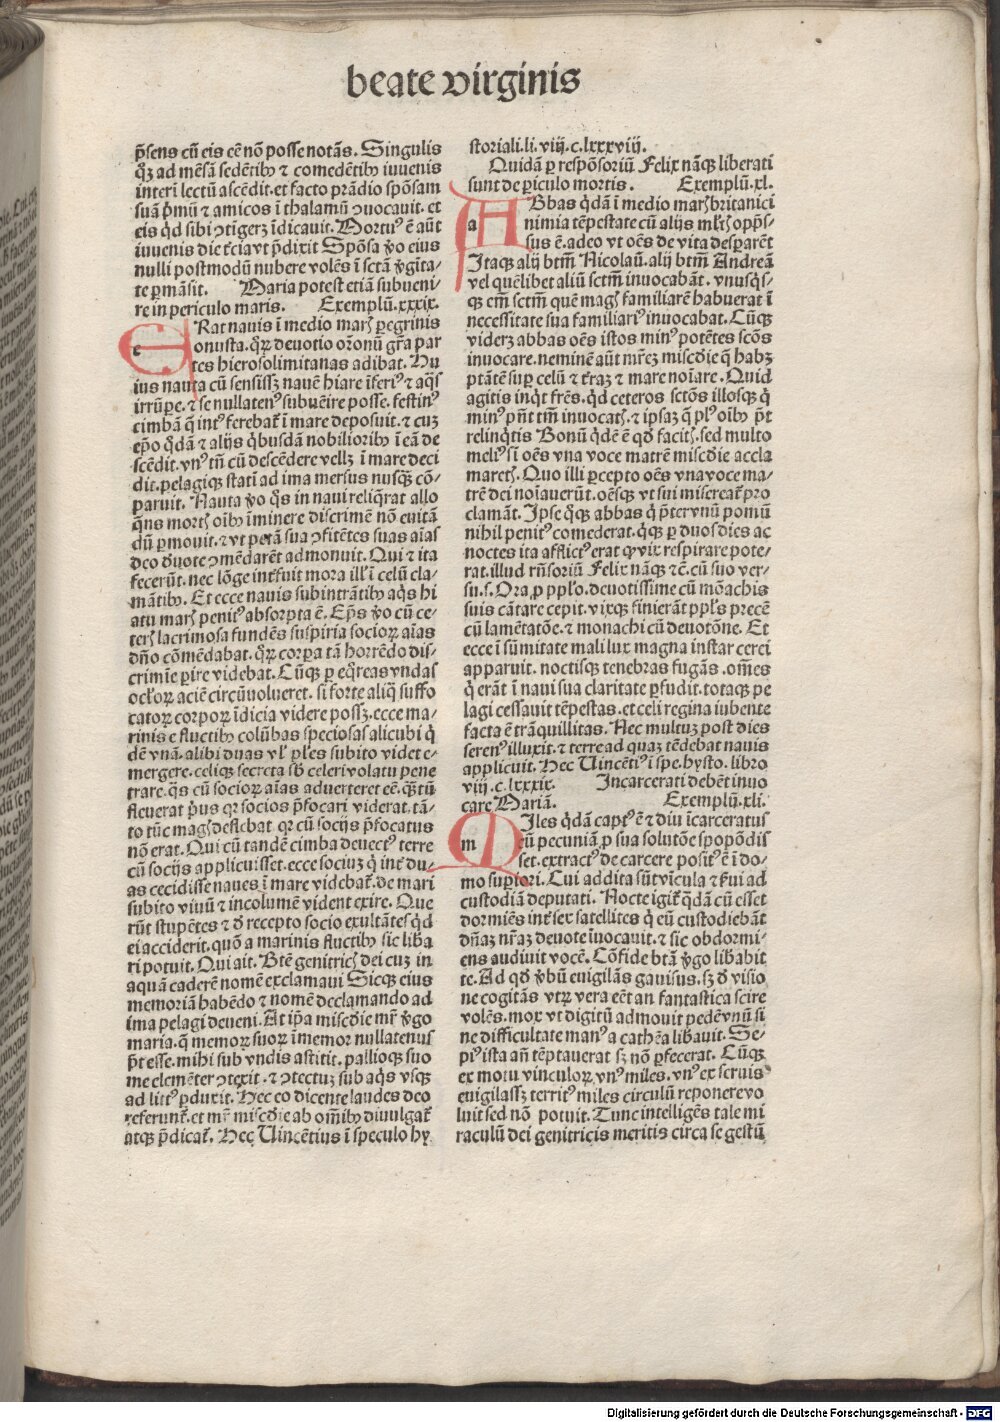 beate virginis
p̃sens cū eis eē nō posse notās. Singulis
qͦʒ ad mēsā sedētibꝰ ⁊ comedētibꝰ iuuenis
interī lectū ascēdit. et facto prādio spōsam
suā p̄mū ⁊ amicos ī thalamū ꝯuocauit. et
eis qd̄ sibi ꝯtigerʒ īdicauit. Mortuꝰ ē aūt
iuuenis die t̄cia vt p̄dixit Spōsa v̄o eius
nulli postmodū nubere volēs ī sctā v̄gīta/
te ꝑmāsit. Maria potest etiā subueni/
re in periculo maris. Exemplū. xxxix.
ERat nauis ī medio marꝭ ꝑegrinis
onusta. qꝝ deuotio oronū gr̄a par
tes hierosolimitanas adibat. Hu
ius nauta cū sensissʒ nauē hiare īferiꝰ ⁊ aqͣs
irrūpe. ⁊ se nullatenꝰ subueīre posse. festinꝰ
cimbā q̄ intꝰ ferebat̄ ī mare deposuit. ⁊ cuʒ
ep̄o qd̄ā ⁊ alijs qͥbusdā nobilioribꝰ ī eā de
scēdit. vnꝰ tn̄ cū descēdere vellʒ ī mare deci
dit. pelagiqʒ statī ad ima mersus nusqͣ̄ cō/
paruit. Nauta v̄o qͥs in naui reliqͥrat allo
qͥns mortꝭ oībꝰ īminere discrimē nō euitā
dū ꝑmouit. ⁊ vt petā sua ꝯfitētes suas aīas
deo d̄uote ꝯmēdarēt admonuit. Qui ⁊ ita
fecerūt. nec lōge int̄fuit mora illꝭ ī celū cla/
mātibꝰ. Et ecce nauis subintrātibꝰ aqͥs hi
atu marꝭ penitꝰ absorpta ē. Ep̄s v̄o cū ce/
terꝭ lacrimosa fundēs suspiria socioꝝ aīas
dn̄o cōmēdabat. qꝝ corꝑa tā horrēdo dis/
crimīe ꝑire videbat. Cūqʒ ꝑ eqͦreas vndas
ocl̄oꝝ aciē circūuolueret. si forte aliqͣ suffo
catoꝝ corpoꝝ īdicia videre possʒ. ecce ma/
rinis e fluctibꝰ colūbas speciosas alicubi qͥ
dē vnā. alibi duas vl̓ pl̄es subito videt e/
mergere. celiqʒ secreta sb̄ celeri volatu pene
trare. qͥs cū socioꝝ aīas aduerteret eē. qͣ̄tū
fleuerat pͥus qꝛ socios p̄focari viderat. tā/
to tūc magꝭ deflebat. qꝛ cū socijs p̄focatus
nō erat. Qui cū tandē cimba deuectꝰ terre
cū socijs applicuisset. ecce sociuʒ qͥ int̄ du/
as cecidisse naues ī mare videbat̄. de mari
subito viuū ⁊ incolumē vident exire. Que
rūt stupētes ⁊ d̄ recepto socio exultātes qͥd
ei acciderit. quō a marinis fluctibꝰ sic lib̄a
ri potuit. Qui ait. Btē genitricꝭ dei cuʒ in
aquā caderē nomē exclamaui Sicqʒ eius
memoriā habēdo ⁊ nomē declamando ad
ima pelagi deueni. At ip̄a mīscd̄ie mr̄ v̄go
maria. q̄ memoꝝ suoꝝ īmemor nullatenus
p̄t esse. mihi sub vndis astitit. pallioqʒ suo
me clemēter ꝯtexit. ⁊ ꝯtectuʒ sub aqͥs vsqʒ
ad littꝰ ꝑduxit. Hec eo dicente laudes deo
referunt̄. et mr̄ʒ mīscd̄ie ab om̄ibꝰ diuulgat̄
atqʒ p̄dicat̄. Hec Uincētius ī speculo hy
storiali. li. viij. c. lxxxviij.
Quidā ꝑ respōsoriū Felix nāqʒ liberati
sunt de ꝑiculo mortis. Exemplū. xl.
ABbas qd̄ā ī medio marꝭ britanici
nimia tēpestate cū alijs mltꝭ opp̄s/
sus ē. adeo vt oēs de vita desꝑarēt
Itaqʒ alij btm̄ Nicolaū. alij btm̄ Andreā
vel quēlibet aliū sctm̄ inuocabāt. vnusqͥs/
qʒ em̄ sctm̄ quē magꝭ familiarē habuerat ī
necessitate sua familiariꝰ inuocabat. Cūqʒ
viderʒ abbas oēs istos minꝰ potētes scōs
inuocare. neminē aūt mr̄eʒ mīscd̄ie q̄ habʒ
ptātē suꝑ celū ⁊ t̄raʒ ⁊ mare noīare. Quid
agitis inqͥt fr̄es. qd̄ ceteros sctōs illosqʒ qͥ
minꝰ pn̄t tm̄ inuocatꝭ. ⁊ ipsaʒ q̄ plꝰ oībꝰ p̄t
relinqͥtis Bonū qͥdē ē qd̄ facitꝭ. sed multo
meliꝰ si oēs vna voce matrē mīscd̄ie accla
maretꝭ. Quo illi ꝑcepto oēs vna voce ma/
trē dei noīauerūt. oēsqʒ vt sui misereat̄ pro
clamāt. Ipse qͦqʒ abbas qͥ p̄ter vnū pomū
nihil penitꝰ comederat. qͥqʒ ꝑ duos dies ac
noctes ita afflictꝰ erat qꝙ vix respirare pote/
rat. illud rn̄soriū Felix nāqʒ ⁊c̄. cū suo ver/
su. s. Ora ꝓ pplo. deuotissime cū mōachis
suis cātare cepit. vixqʒ finierāt ppl̄s precē
cū lamētatōe. ⁊ monachi cū deuotōne. Et
ecce ī sūmitate mali lux magna instar cerei
apparuit. noctisqʒ tenebras fugās. om̄es
qͥ erāt ī naui sua claritate ꝑfudit. totaqʒ pe
lagi cessauit tēpestas. et celi regina iubente
facta ē trāquillitas. Nec multuʒ post dies
serenꝰ illuxit. ⁊ terre ad quaʒ tēdebat nauis
applicuit. Hec Uincētiꝰ ī spe. hysto. libro
viij. c. lxxxix. Incarcerati debēt inuo
care Mariā. Exemplū. xli.
MIles qd̄ā captꝰ ē ⁊ diu īcarceratus
cū pecuniā ꝓ sua solutōe spopōdis
set. extractꝰ de carcere positꝰ ē ī do/
mo suꝑiori. Cui addita sūt vīcula ⁊ ẜui ad
custodiā deputati. Nocte igit̄ qd̄ā cū esset
dormiēs int̄ sex satellites qͥ eū custodiebāt
dn̄aʒ nr̄aʒ deuote īuocauit. ⁊ sic obdormi/
ens audiuit vocē. Cōfide btā v̄go lib̄abit
te. Ad qd̄ v̄bū euigilās gauisus. sʒ d̄ visio
ne cogitās vtꝝ vera eēt an fantastica scire
volēs. mox vt digitū admouit pedē vnū si
ne difficultate manꝰ a cathēa lib̄auit. Se/
piꝰ ista an̄ tēptauerat sʒ nō ꝑfecerat. Cūqʒ
ex motu vinculoꝝ vnꝰ miles. vnꝰ ex seruis
euigilassʒ territꝰ miles circulū reponere vo
luit sed nō potuit. Tunc intelligēs tale mi
raculū dei genitricis meritis circa se gestū
Digitalisierung gefördert durch die Deutsche Forschungsgemeinschaft - DFG